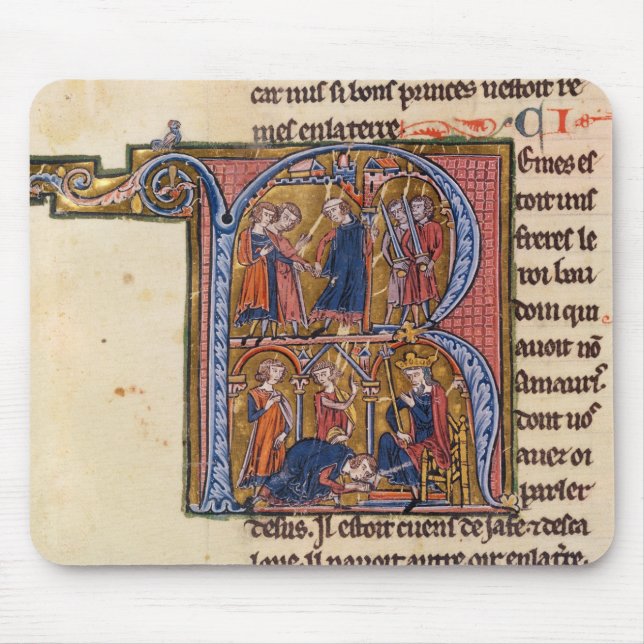 car nus si bons princes nestoit re
mes enlaterre CI
R
Emes es
toit uns
freres le
roi bau
doin qui
auoit nō
Amauri.
dont uoꝰ
auez oi
parler
desus. Il estoit cuens de Jafe ⁊ desca
lone. Il nauoit autre oir enlat̄re.